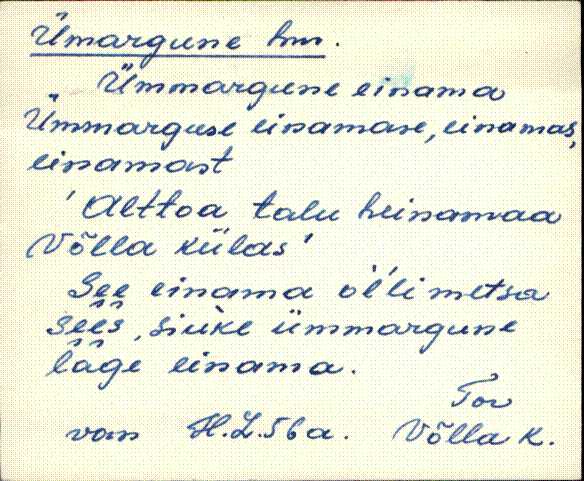 Ümargune hm.
Ümmargune einama
Ümmarguse einamase, einamas,
einamast
'Alttoa talu heinamaa
Võlla külas'
See einama ol'li metsa
sees, siuke ümmargune
lage einama.
Tor
van H.L. 56 a. Võlla k.